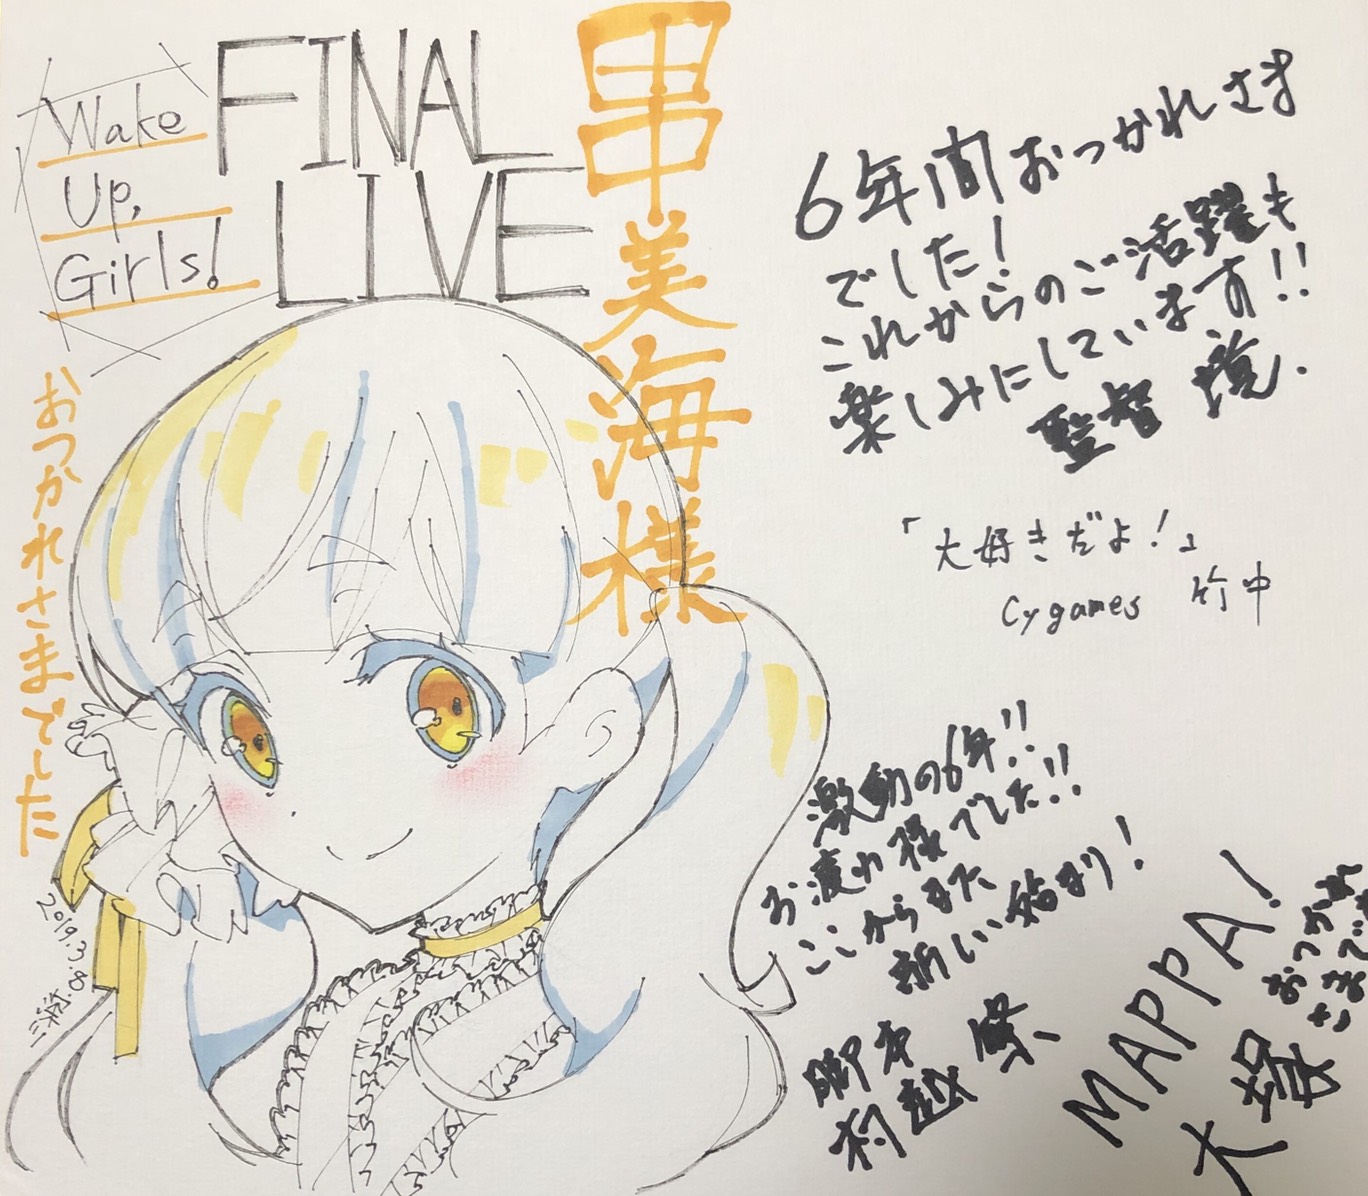 Wake
Up,
Girls!
FINAL
LIVE
田中美海様
おつかれさまでした
2019.3.8.
6年間おつかれさま
でした!
これからのご活躍も
楽しみにしています!!
監督 境.
「大好きだよ!」
Cygames 竹中
激動の6年!!
お疲れ様でした!!
ここからまた
新しい始まり!
脚本
村越 繁
MAPPA!
大塚
おつかれ
さまでした